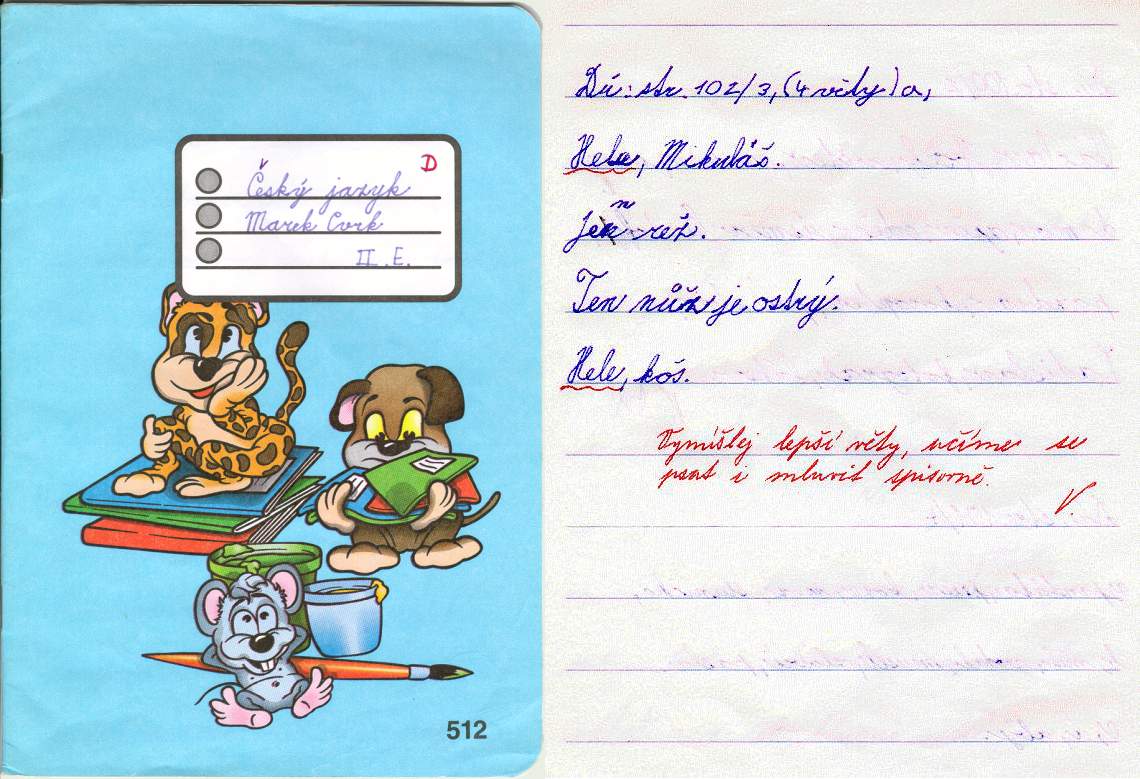 D
Český jazyk
Marek Cvrk
II. E.
512
Dú: str. 102/3, (4 věty) a,
Hele, Mikuláš.
Jen řež.
Ten nůž je ostrý.
Hele, kos.
Vymýšlej lepší věty, učíme se
psat i mluvit spisovně.
V.